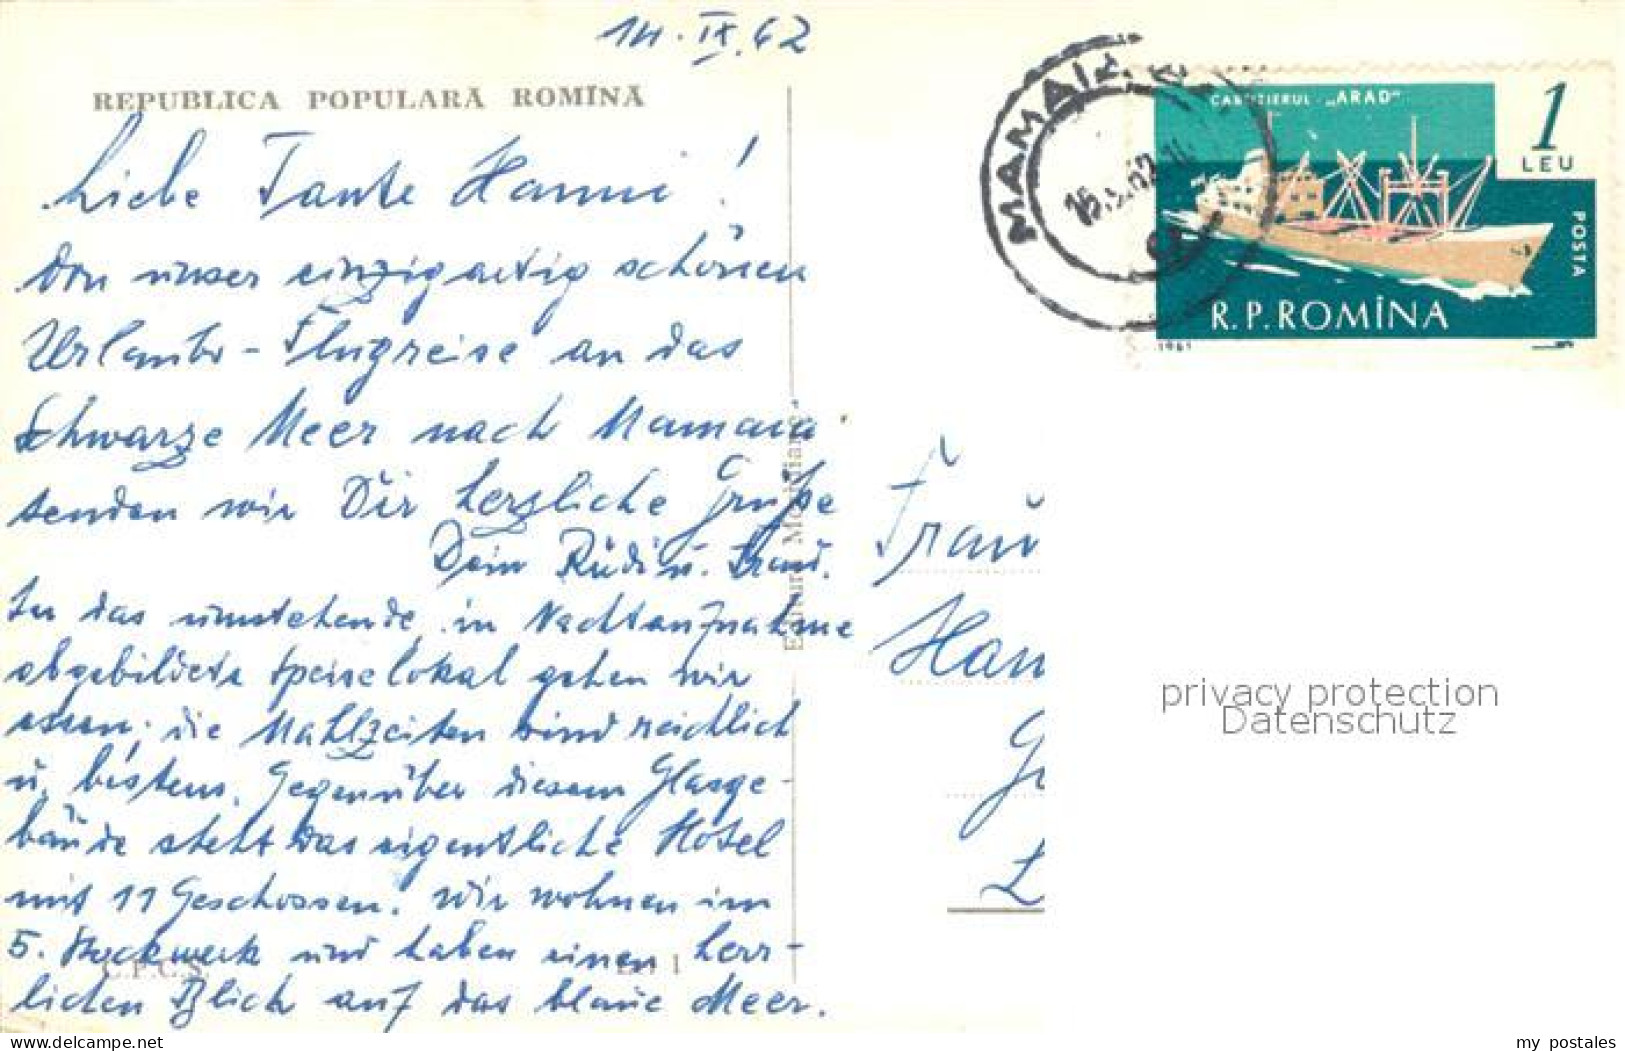 14. IX. 62
REPUBLICA POPULARĂ ROMÎNĂ
Liebe Tante Hanni!
Von unser einzigartig schönen
Urlaubs-Flugreise an das
Schwarze Meer nach Mamaia
senden wir Dir herzliche Grüße
Dein Rudi u. Traud.
In das umstehende, in Nachtaufnahme
abgebildete Speiselokal gehen wir
essen; die Mahlzeiten sind reichlich
u. bestens. Gegenüber diesem Glasge-
bäude steht das eigentliche Hotel
mit 11 Geschossen. Wir wohnen im
5. Stockwerk und haben einen herr-
lichen Blick auf das blaue Meer.
C.P.C.S.
Editura Meridiane
MAMAIA
CARGOTIERUL „ARAD"
1
LEU
POSTA
R.P.ROMÎNA
1961
Frau
Han
L
privacy protection
Datenschutz
www.delcampe.net
my_postales